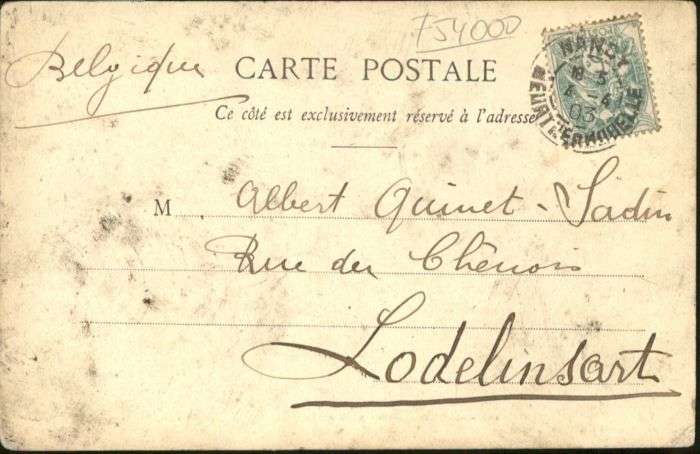 754000
Belgique
CARTE POSTALE
Ce côté est exclusivement réservé à l'adresse
NANCY
4 - 4
03
MEURTHE-ET-MOSELLE
M Albert Quinet - Sadin
Rue des Chênois
Lodelinsart